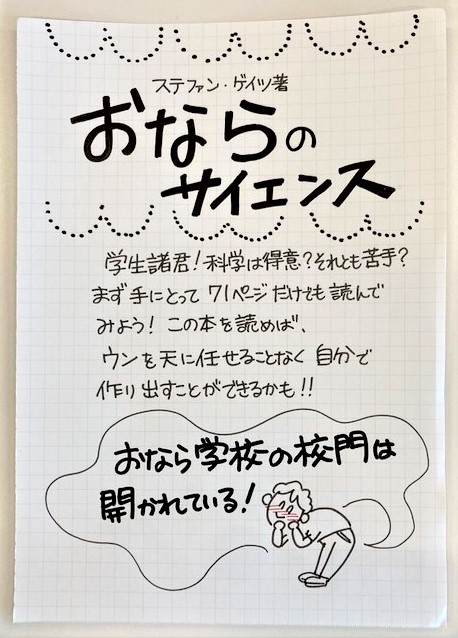 ステファン・ゲイツ著
おならの
サイエンス
学生諸君！科学は得意？それとも苦手？
まず手にとって 71ページだけでも読んで
みよう！この本を読めば、
ウンを天に任せることなく自分で
作り出すことができるかも！！
おなら学校の校門は
開かれている！